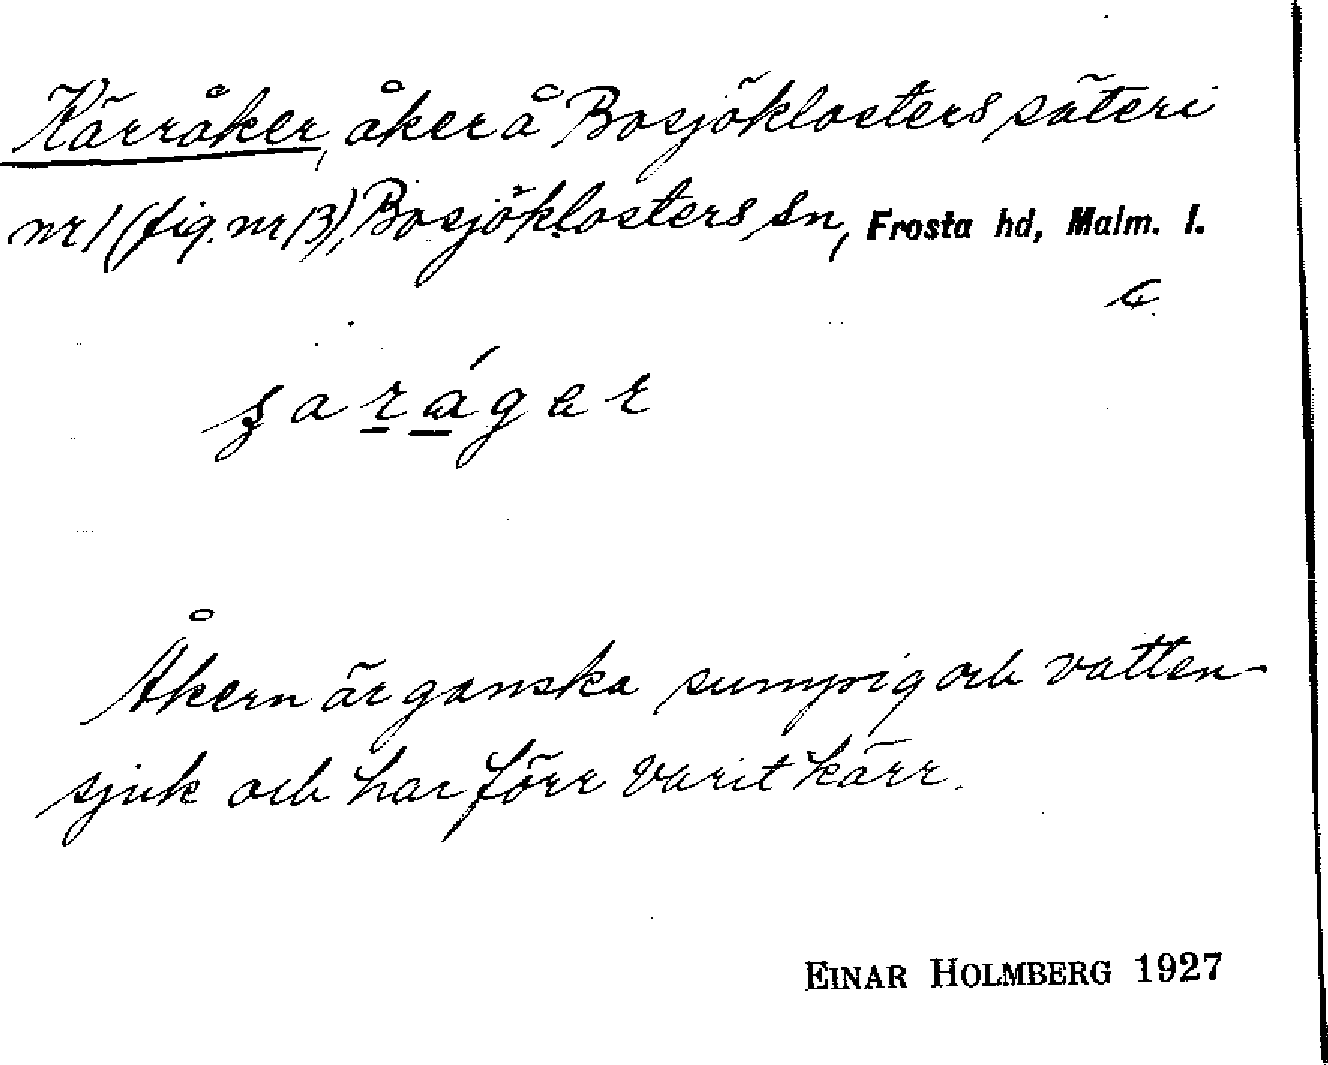 Kärråker, åker å Bosjöklosters säteri
nr 1 (fig. nr 13), Bosjöklosters sn, Frosta hd, Malm. l.
Åkern är ganska sumpig och vatten-
sjuk och har förr varit kärr.
EINAR HOLMBERG 1927